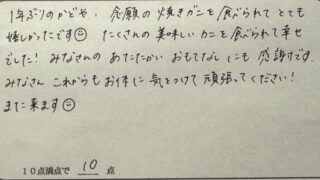 1年ぶりのかどや、念願の焼きガニを食べられてとても
嬉しかったです☺ たくさんの美味しいカニを食べられて幸せ
でした！みなさんのあたたかいおもてなしにも感謝です。
みなさんこれからもお体に気をつけて頑張ってください！
また来ます☺
10点満点で 10 点